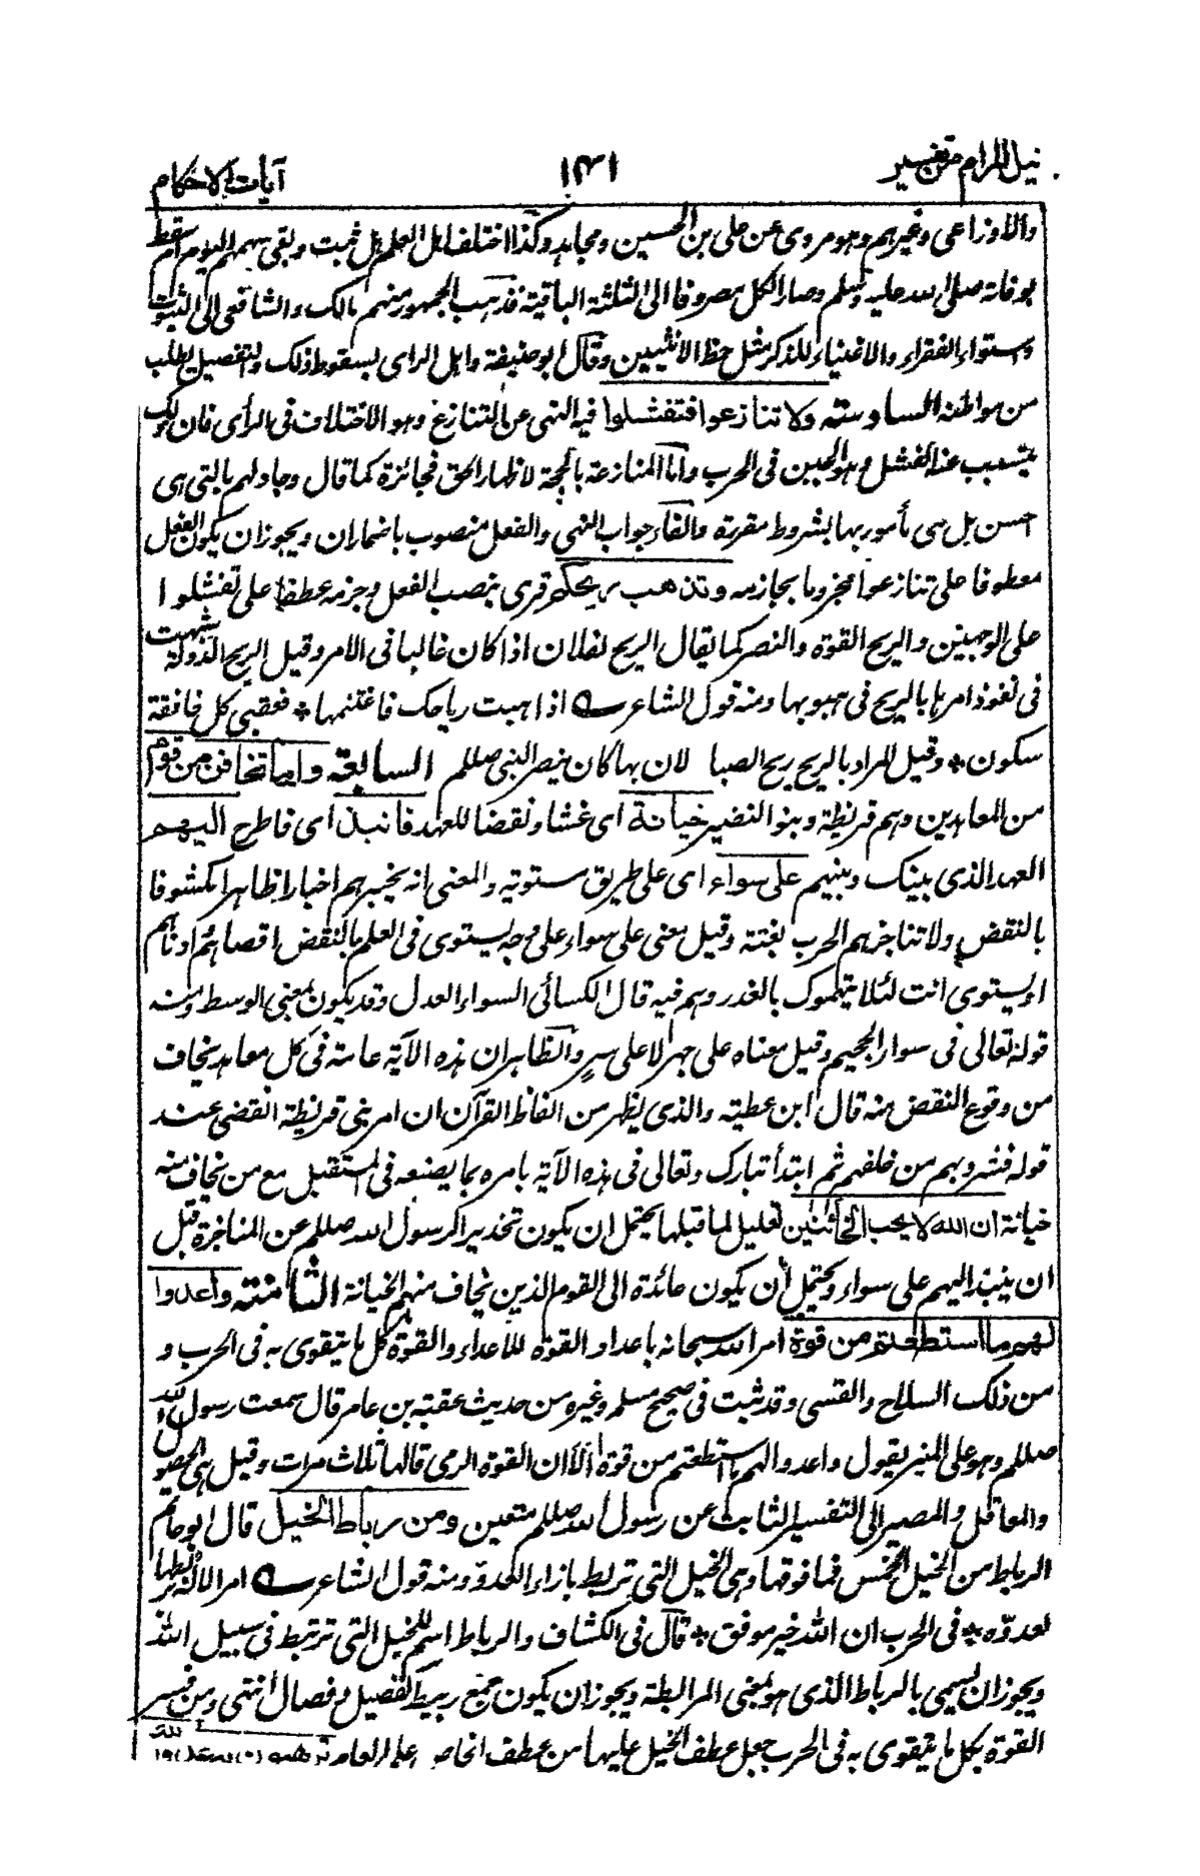 نيل المرام من تفسير
١٤١
آيات الاحكام
والاوزاعى وغيرهم وهو مروى عن على بن الحسين ومجاهد وكذا اختلف اهل العلم هل ثبت وبقى سهمهم اليوم ام سقط
بوفاته صلى الله عليه وسلم وصار الكل مصروفا الى الثلثة الباقية فذهب الجمهور منهم مالك والشافعى الى الثبوت
واستواء الفقراء والاغنياء للذكر مثل حظ الانثيين وقال ابو حنيفة واهل الراى بسقوط ذلك والتفصيل يطلب
من مواطنه السادسته ولا تنازعوا فتفشلوا فيه النهى عن التنازع وهو الاختلاف فى الرأى فان ذلك
يتسبب عنه الفشل وهو الجبن فى الحرب واما المنازعة بالحجة لاظهار الحق فجائزة كما قال وجادلهم بالتى هى
احسن بل هى مأمور بها بشروط مقررة والفاء جواب النهى والفعل منصوب باضماران ويجوز ان يكون الفعل
معطوفا على تنازعوا مجزوما بجازمه وتذهب ريحكم قرى بنصب الفعل وجزمه عطفا على تفشلوا
على الوجهين والريح القوة والنصر كما يقال الريح لفلان اذا كان غالبا فى الامر وقيل الريح الدولة شبهت
فى نفوذ امرها بالريح فى هبوبها ومنه قول الشاعر اذا هبت رياحك فاغتنمها * فعقبى كل خافقة
سكون * وقيل المراد بالريح ريح الصبا لان بها كان ينصر النبى صللم السابعة واما تخافن من قوم
من المعاهدين وهم قريظة وبنو النضير خيانة اى غشا ونقضا للعهد فانبذ اى فاطرح اليهم
العهد الذى بينك وبينهم على سواء اى على طريق مستوية والمعنى انه يخبرهم اخبارا ظاهرا مكشوفا
بالنقض ولا تناجزهم الحرب بغتة وقيل معنى على سواء على وجه يستوى فى العلم بالنقض اقصاهم وادناهم
او يستوى انت لئلا يتهموك بالغدر وهم فيه قال الكسائى السواء العدل وقد يكون بمعنى الوسط ومنه
قوله تعالى فى سواء الجحيم وقيل معناه على جهر لا على سر والظاهر ان هذه الآية عامة فى كل معاهد يخاف
من وقوع النقض منه قال ابن عطية والذى يظهر من الفاظ القرآن ان امر بنى قريظة انقضى عند
قوله فشرد بهم من خلفهم ثم ابتدأ تبارك وتعالى فى هذه الآية بامره بما يصنعه فى المستقبل مع من يخاف منه
خيانة ان الله لا يحب الخائنين تعليل لما قبلها يحتمل ان يكون تحذيرا لرسول الله صللم عن المناجزة قبل
ان ينبذ اليهم على سواء ويحتمل ان يكون عائدة الى القوم الذين يخاف منهم الخيانة الثامنته واعدوا
لهم ما استطعتم من قوة امر الله سبحانه باعداد القوة للاعداء والقوة كل ما يتقوى به فى الحرب و
من ذلك السلاح والقسى وقد ثبت فى صحيح مسلم وغيره من حديث عقبة بن عامر قال سمعت رسول الله
صللم وهو على المنبر يقول واعدوا لهم ما استطعتم من قوة الا ان القوة الرمى قالها ثلاث مرات وقيل هى الحصون
والمعاقل والمصير الى التفسير الثابت عن رسول الله صللم متعين ومن رباط الخيل قال ابو حاتم
الرباط من الخيل الخمس فما فوقها وهى الخيل التى تربط بازاء العدو ومنه قول الشاعر امر الاله بربطها
لعدوه * فى الحرب ان الله خير موفق * قال فى الكشاف والرباط اسم للخيل التى ترتبط فى سبيل الله
ويجوز ان يسمى بالرباط الذى هو بمعنى المرابطة ويجوز ان يكون جمع ربيط كفصيل وفصال انتهى ومن فسر
القوة بكل ما يتقوى به فى الحرب جعل عطف الخيل عليها من عطف الخاص على العام ترهبون به عدو الله